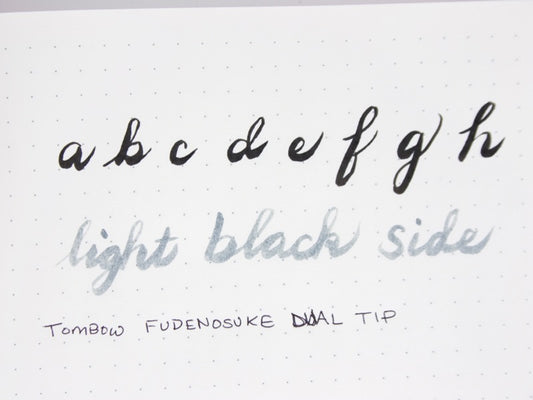 a b c d e f g h
light black side
TOMBOW FUDENOSUKE DUAL TIP